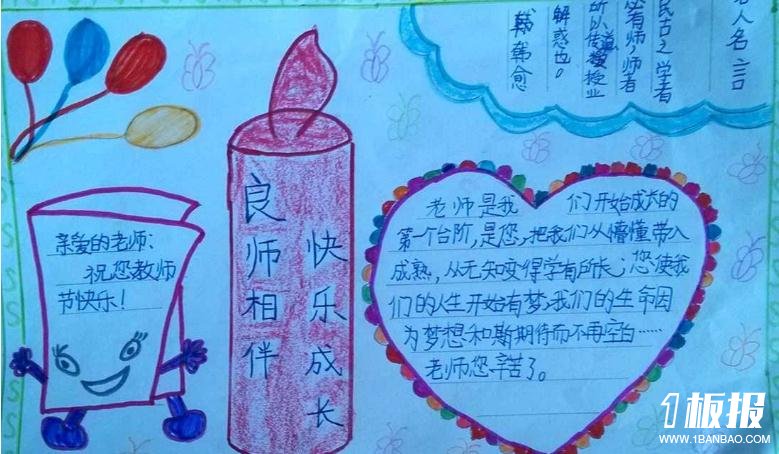 亲爱的老师:
祝您教师
节快乐!
良师相伴
快乐成长
人名言
古之 学者
必有师,师者
所以传道授业
解惑也。
韩韩愈
老师是我 们开始成长的
第一个台阶,是您,把我们从懵懂带入
成熟,从无知变得学有所长;您使我
们的人生开始有梦,我们的生命因
为梦想和斯期待而不再空白……
老师您辛苦了。
1板报
WWW.1BANBAO.COM